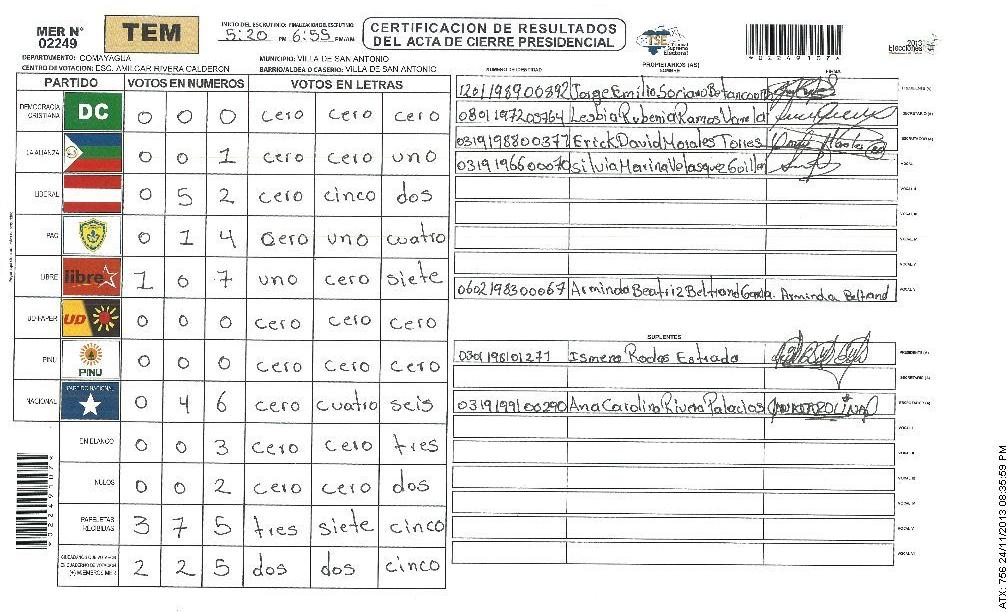 MER N° 02249
TEM
INICIO DEL ESCRUTINIO: FINALIZACION DEL ESCRUTINIO
5:20 PM 6:55 PM/AM
CERTIFICACION DE RESULTADOS
DEL ACTA DE CIERRE PRESIDENCIAL
TSE Tribunal Supremo Electoral
2013
Elecciones
DEPARTAMENTO: COMAYAGUA
MUNICIPIO: VILLA DE SAN ANTONIO
CENTRO DE VOTACION: ESC. AMILCAR RIVERA CALDERON
BARRIO/ALDEA O CASERIO: VILLA DE SAN ANTONIO
PARTIDO VOTOS EN NUMEROS VOTOS EN LETRAS
DEMOCRACIA CRISTIANA DC 0 0 0 cero cero cero
LA ALIANZA 0 0 1 cero cero uno
LIBERAL 0 5 2 cero cinco dos
PAC 0 1 4 cero uno cuatro
LIBRE libre 1 0 7 uno cero siete
UD-FAPER UD 0 0 0 cero cero cero
PINU PINU 0 0 0 cero cero cero
NACIONAL PARTIDO NACIONAL 0 4 6 cero cuatro seis
EN BLANCO 0 0 3 cero cero tres
NULOS 0 0 2 cero cero dos
PAPELETAS RECIBIDAS 3 7 5 tres siete cinco
CIUDADANOS QUE VOTARON EN CUADERNO DE VOTACION (+) MIEMBROS MER 2 2 5 dos dos cinco
PROPIETARIOS (AS)
NUMERO DE IDENTIDAD NOMBRE FIRMA
1201198900392 Jorge Emilio Soriano Betancourth PRESIDENTE (A)
0801197203764 Lesbia Rubenia Ramos Varela SECRETARIO (A)
0319198800377 Erick David Morales Torres ESCRUTADOR (A)
0319196600070 Silvia Marina Velasquez Guillen VOCAL I
VOCAL II
VOCAL III
VOCAL IV
VOCAL V
0602198300067 Arminda Beatriz Beltrand Garcia Arminda Beltrand
SUPLENTES
0301198101271 Ismera Rodas Estrada PRESIDENTE (A)
SECRETARIO (A)
0319199100290 Ana Carolina Rivera Palacios ESCRUTADOR (A)
VOCAL I
VOCAL II
VOCAL III
VOCAL IV
VOCAL V
VOCAL VI
ATX: 756 24/11/2013 08:35:59 PM